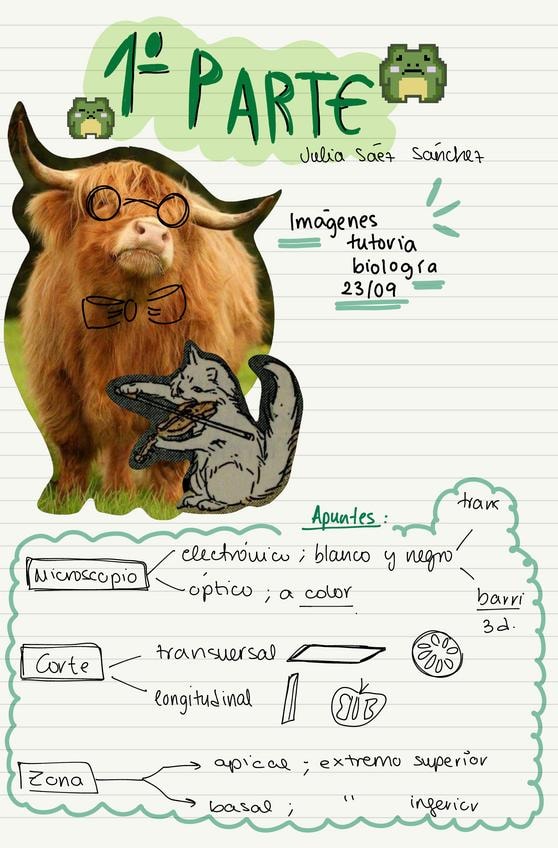 1º PARTE
Julia Sáez Sánchez
Imágenes
tutoria
biología
23/09
Apuntes:
trans
Microscopio
electrónico ; blanco y negro
óptico ; a color
barri
3d.
Corte
transversal
longitudinal
Zona
apical ; extremo superior
basal ; " inferior